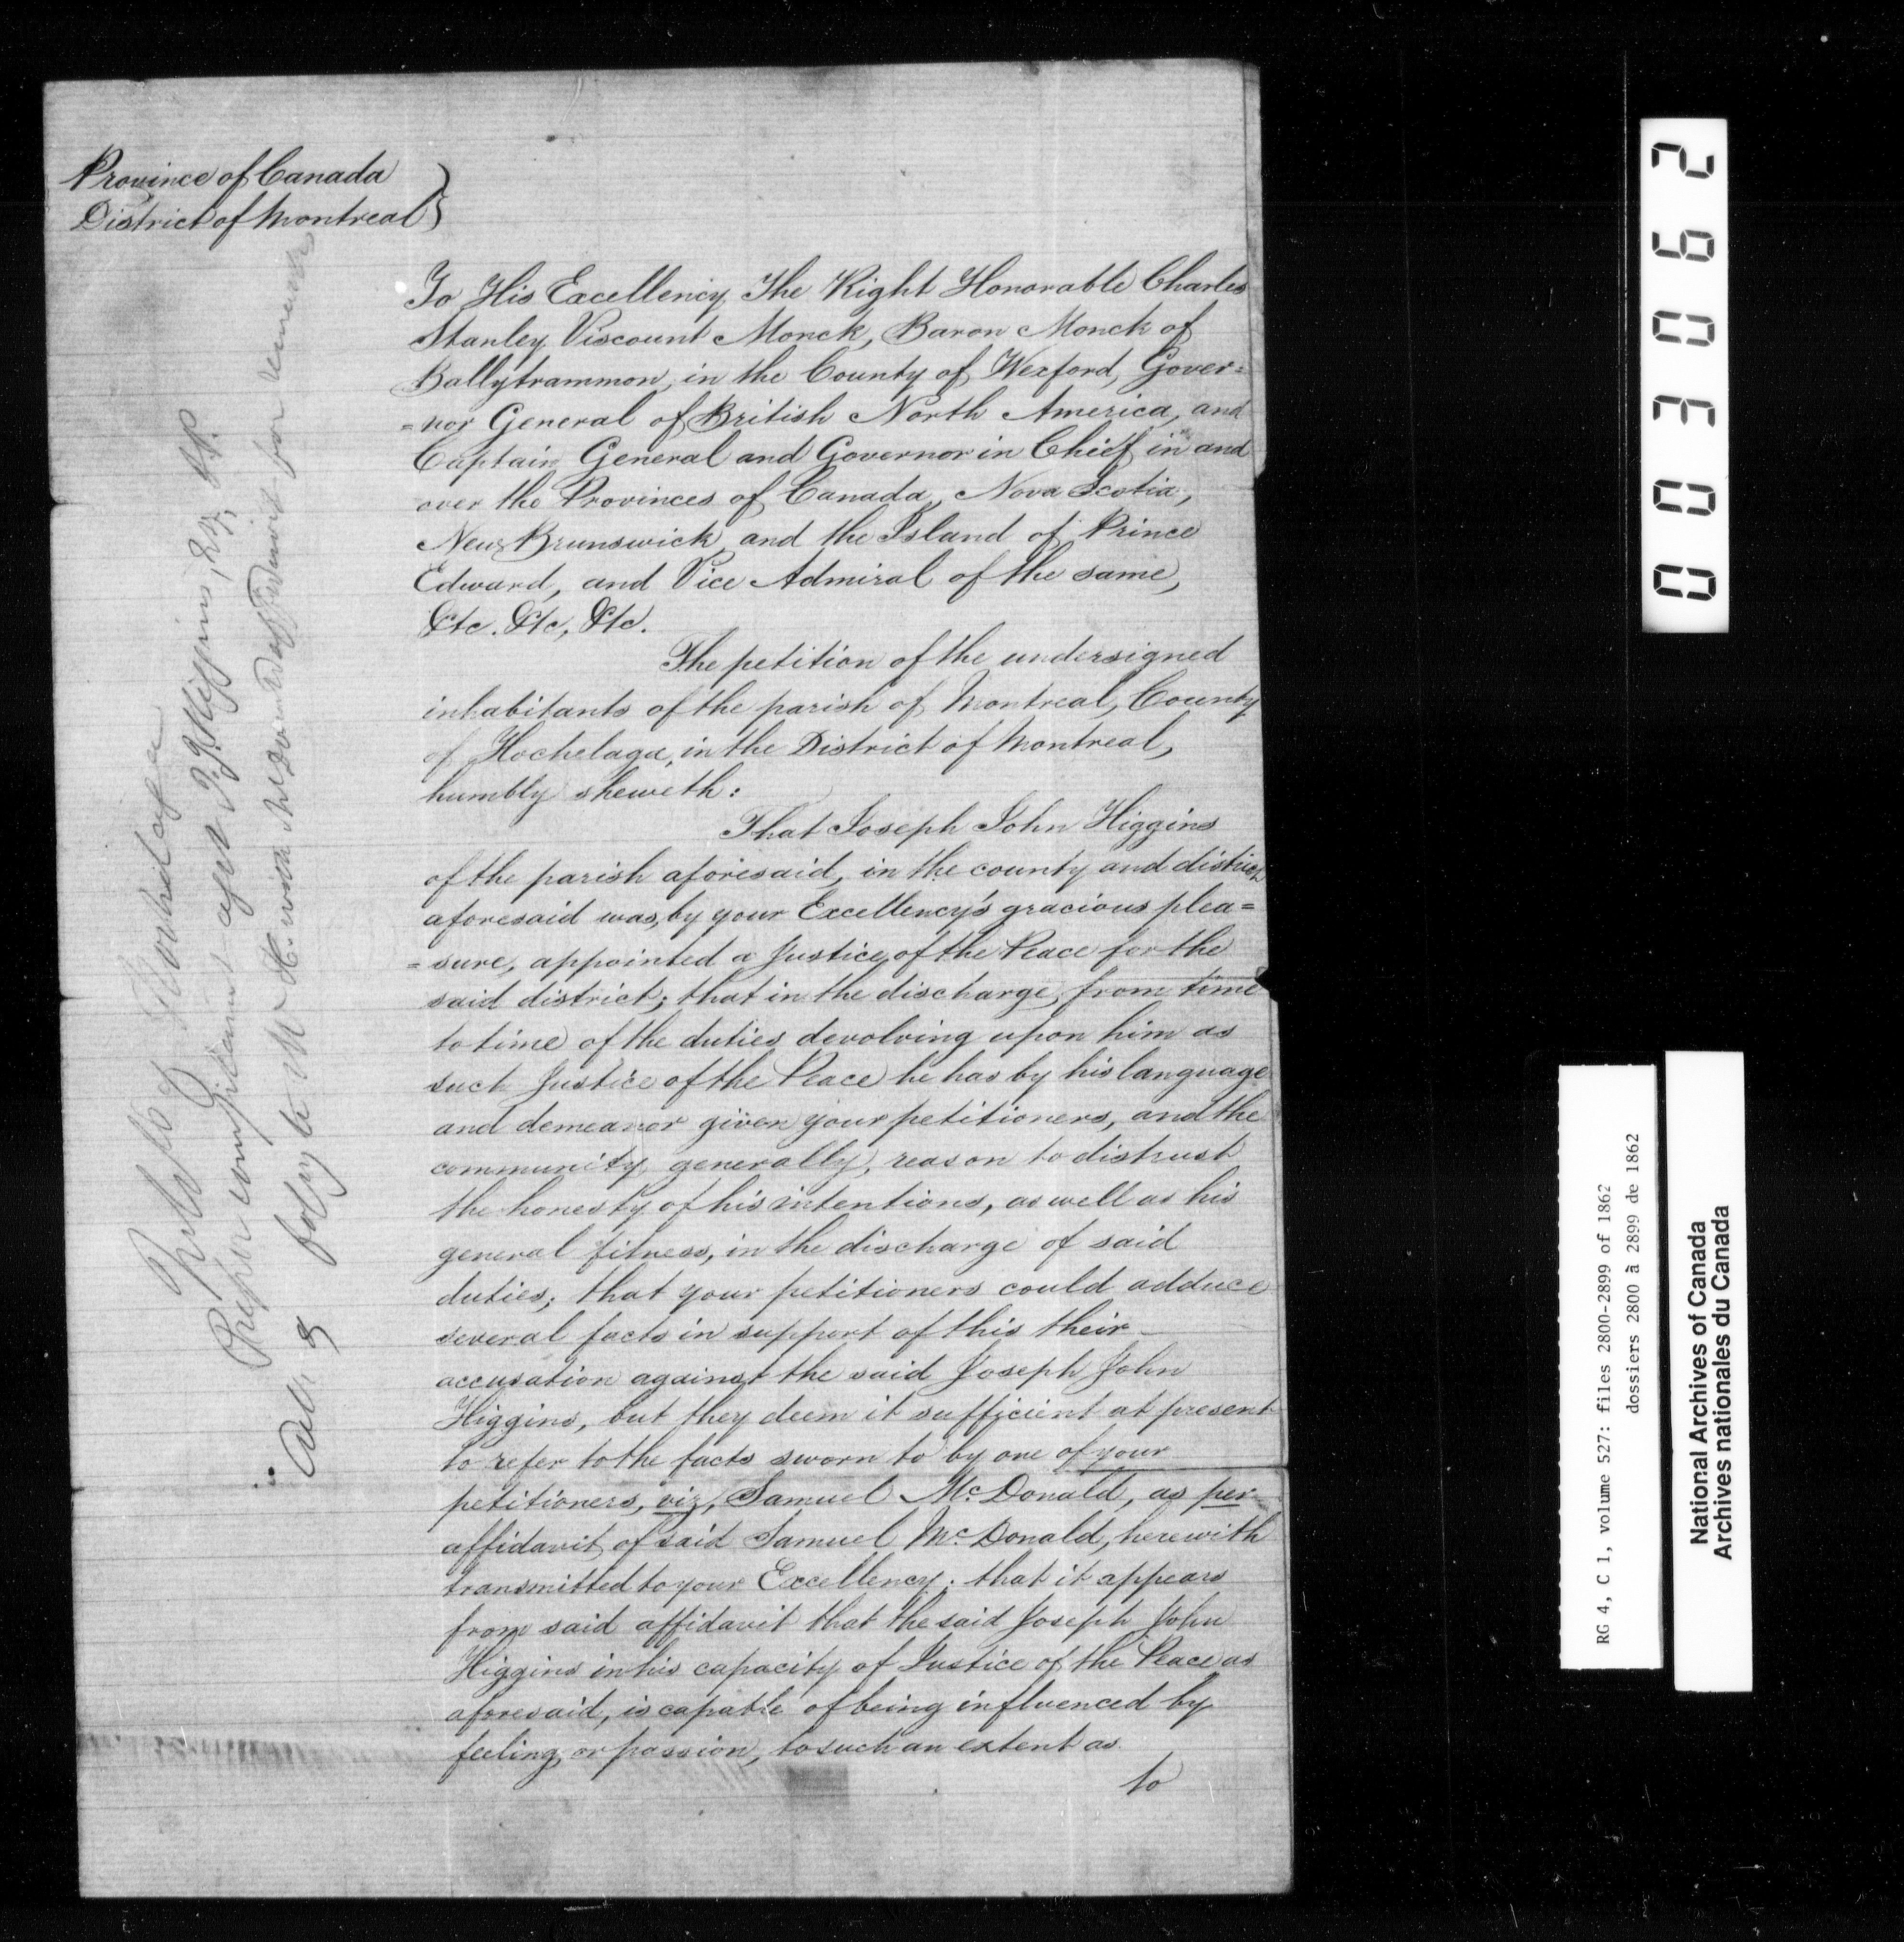 Province of Canada
District of Montreal
To His Excellency The Right Honorable Charles
Stanley Viscount Monck, Baron Monck of
Ballytrammon, in the County of Wexford, Gover=
=nor General of British North America, and
Captain General and Governor in Chief in and
over the Provinces of Canada, Nova Scotia,
New Brunswick, and the Island of Prince
Edward, and Vice Admiral of the same,
Etc. Etc, Etc.
The petition of the undersigned
inhabitants of the parish of Montreal, County
of Hochelaga, in the District of Montreal,
humbly sheweth:
That Joseph John Higgins
of the parish aforesaid, in the county and district
aforesaid was, by your Excellency's gracious plea=
=sure, appointed a Justice of the Peace for the
said district; that in the discharge, from time
to time of the duties devolving upon him as
such Justice of the Peace he has by his language
and demeanor given your petitioners, and the
community, generally, reason to distrust
the honesty of his intentions, as well as his
general fitness, in the discharge of said
duties; that your petitioners could adduce
several facts in support of this their
accusation against the said Joseph John
Higgins, but they deem it sufficient at present
to refer to the facts sworn to by one of your
petitioners, viz, Samuel McDonald, as per
affidavit of said Samuel McDonald, herewith
transmitted to your Excellency; that it appears
from said affidavit that the said Joseph John
Higgins in his capacity of Justice of the Peace as
aforesaid, is capable of being influenced by
feeling, or passion, to such an extent as
to
Inhabs of Hochelaga
Prefer complaint agst J. J. Higgins, Esq, J.P.
copy to Mr H. with McDonald's affidavit for remarks
003062
RG 4, C 1, volume 527: files 2800-2899 of 1862
dossiers 2800 à 2899 de 1862
National Archives of Canada
Archives nationales du Canada